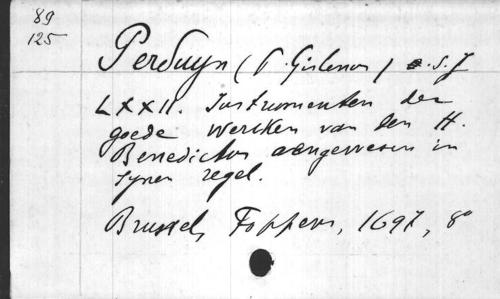 89
125
Perduyn (P. Gislenus) e. S. J
LXXII. Instrumenten der
goede wercken van den H.
Benedictus aengewesen in
synen regel.
Brussel, Foppens, 1697, 8°